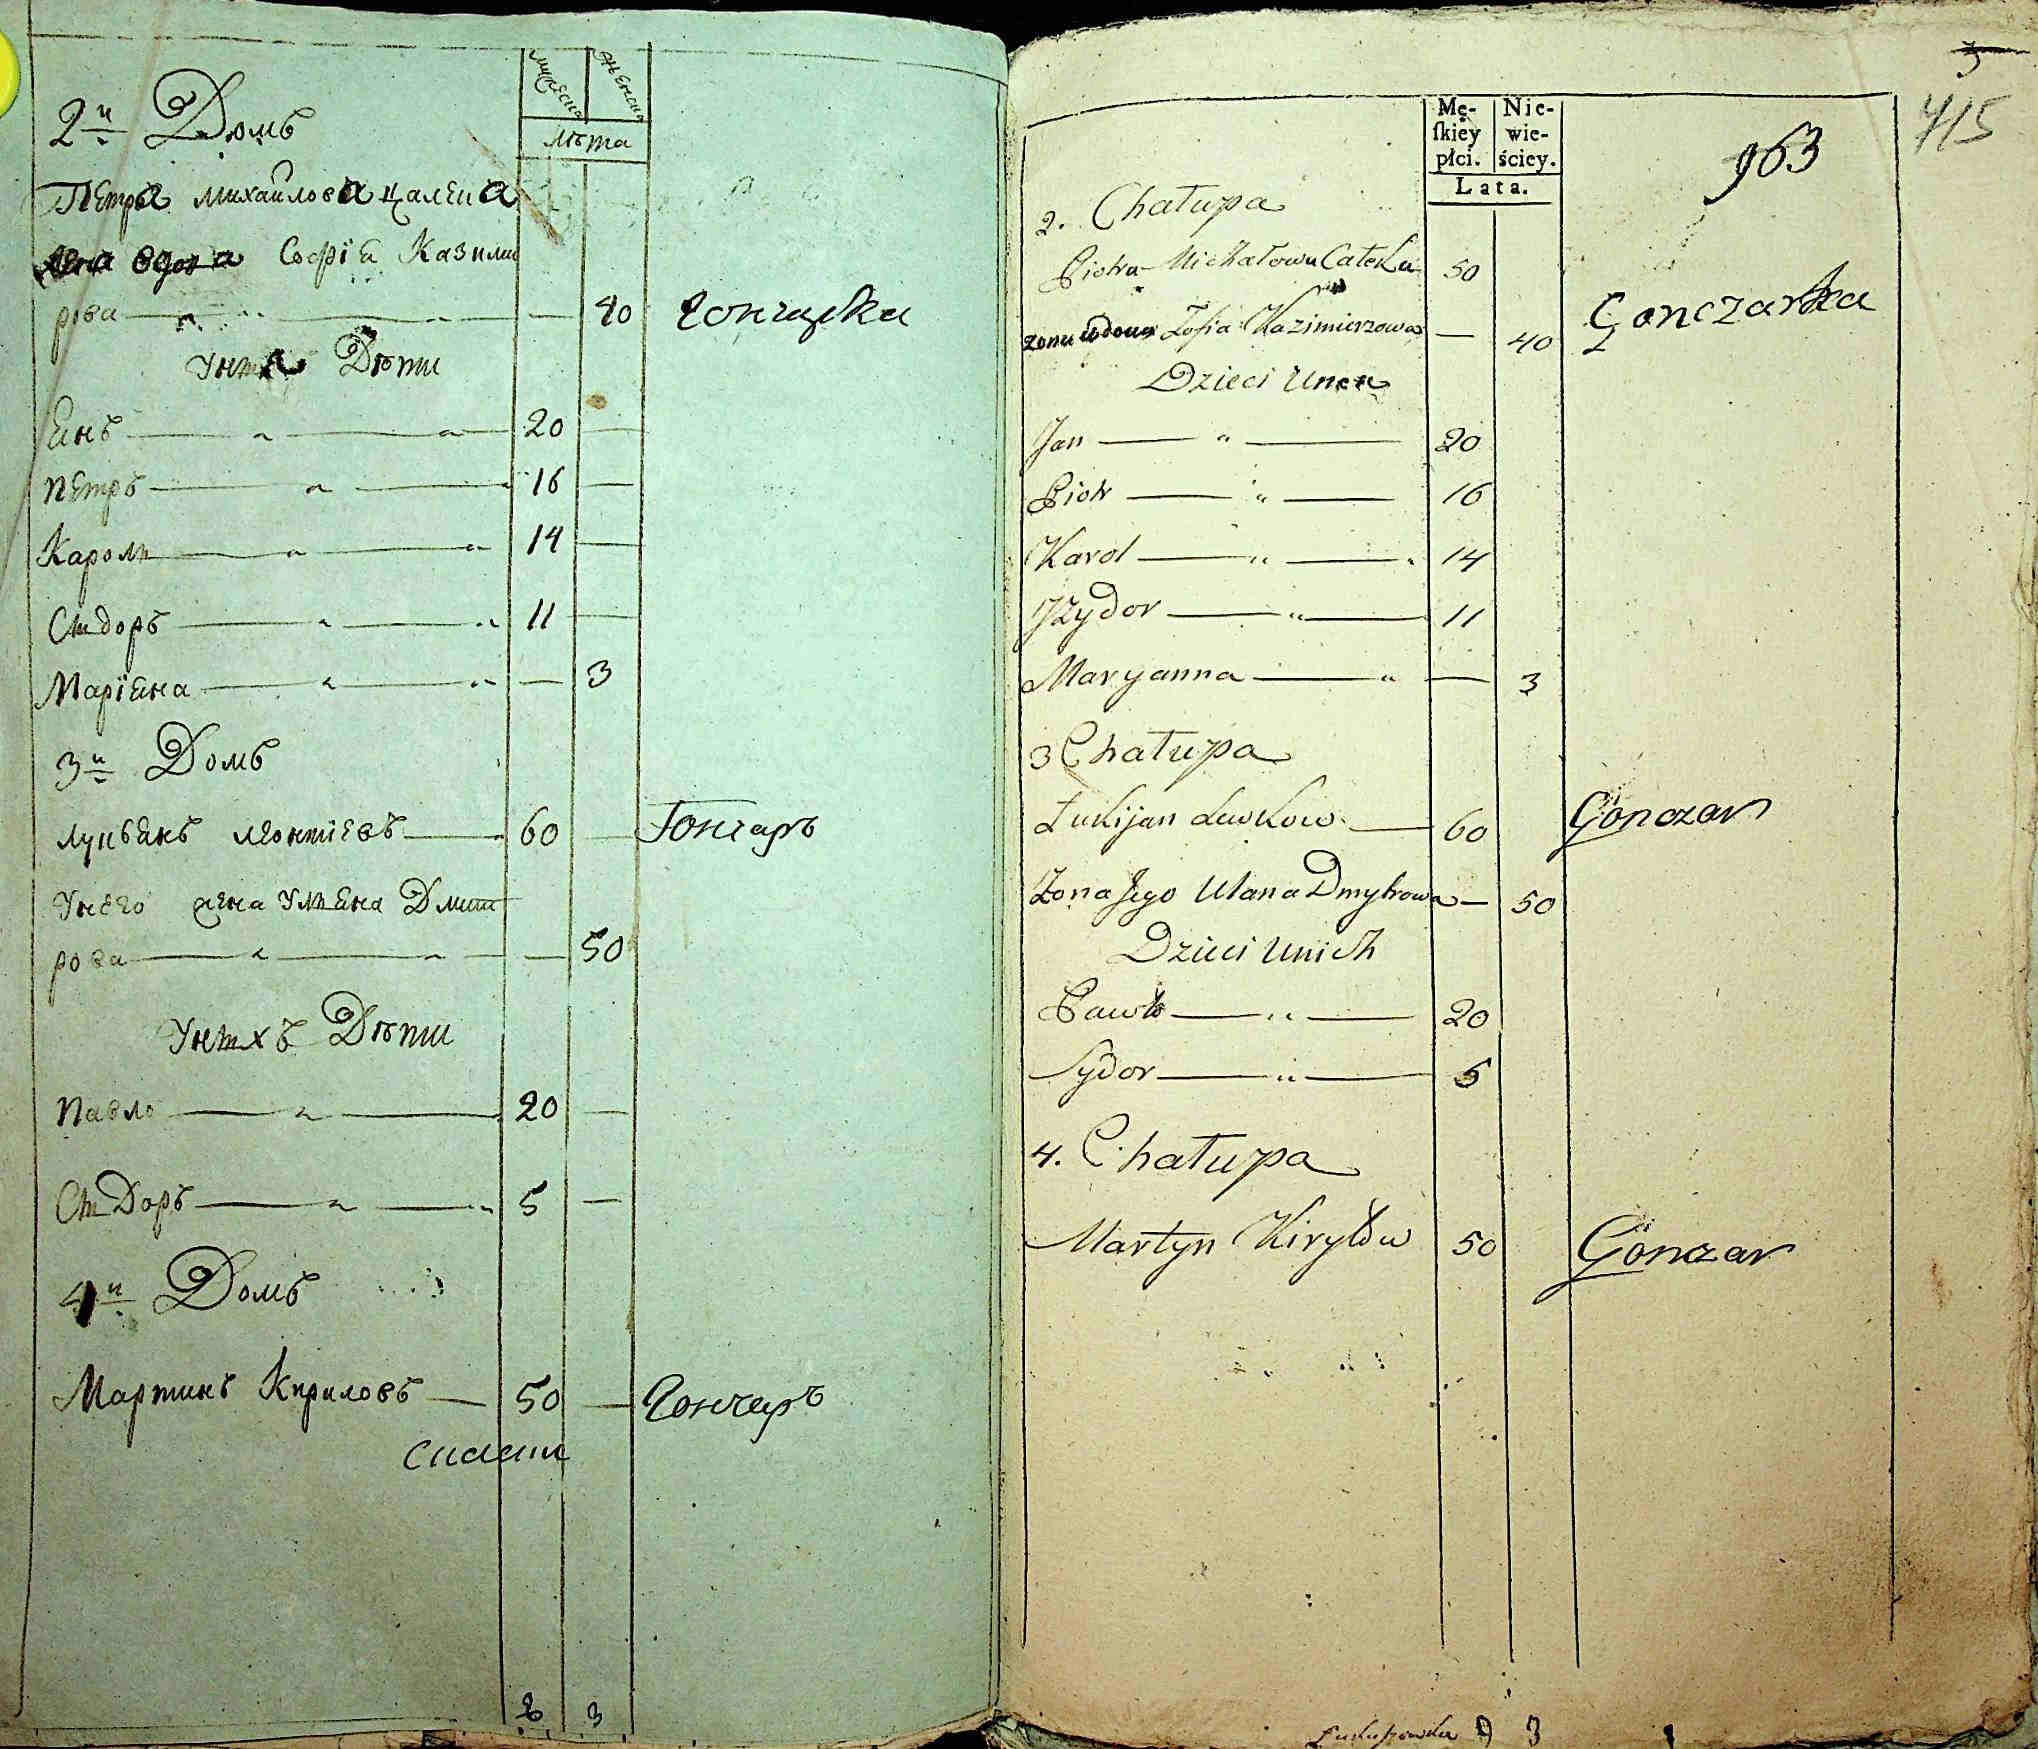 мужеска женска
лѣта
2й Домъ
Петра Михайлова Цалека
жена вдова Софія Казими
рова — 40 Гончарка
Унея Дѣти
Янъ — 20 —
Петръ — 16 —
Кароль — 14 —
Сидоръ — 11 —
Маріяна — — 3
3й Домъ
Лукьянъ Леонтіевъ — 60 — Гончаръ
Унего жена Уляна Дмит
рова — — 50
Унихъ Дѣти
Павло — 20 —
Сидоръ — 5 —
4й Домъ
Мартинъ Кириловъ — 50 — Гончаръ
8 3
3
715
963
Mę- Nie-
ſkiéy wie-
płci. ściey.
Lata.
2. Chałupa
Piotra Michałowa Caleka 50
żona wdowa Zofia Kazimierzowa — 40 Gonczarka
Dzieci Uney
Jan — 20
Piotr — 16
Karol — 14
Jzydor — 11
Maryanna — — 3
3 Chałupa
Łukijan Lewkow — 60 Gonczar
Zona Jego Ulana Dmytrowa — 50
Dzieci Unich
Pawło — 20
Sydor — 5
4. Chałupa
Martyn Kiryłow 50 Gonczar
9 3